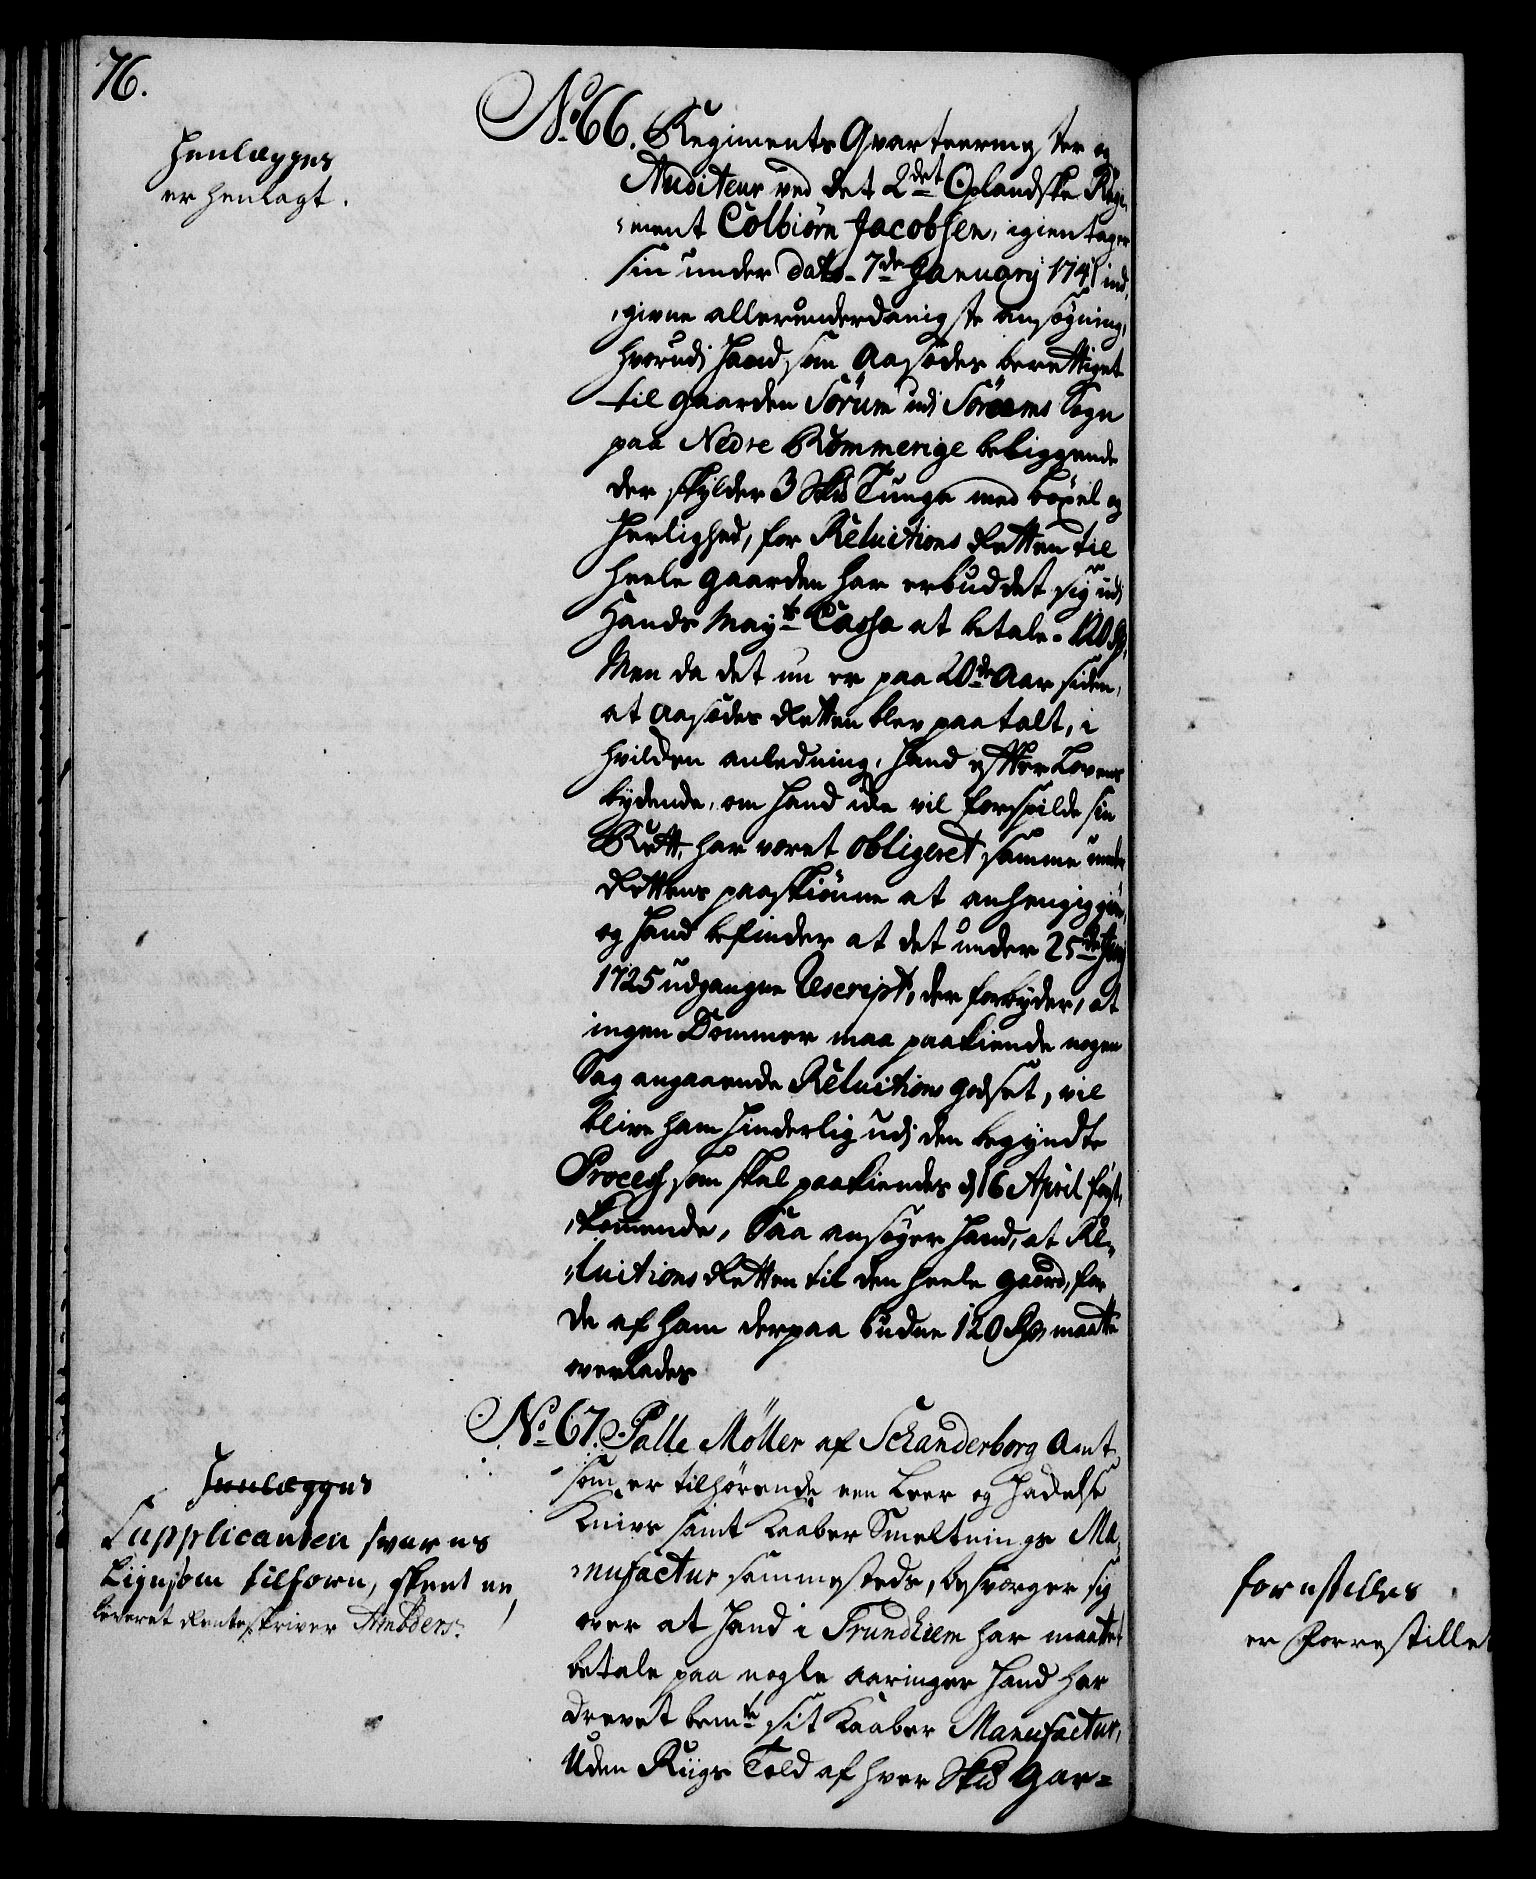 76.
Henlægges
er henlagt.
No 66. Regiments Qvarteermester og
Auditeur ved det 2det Oplandske Regi-
ment Colbiörn Jacobsen, igientager
sin under dato 7de January 1741 ind-
givne allerunderdanigste ansøgning,
hvorudj Hand som Aasædes berettiget
til gaarden Sörum udj Söroems Sogn
paa Nedre Rommerige beliggende
der skylder 3 Skd Tunge med böxel og
Herlighed, for Reluitions Retten til
heele gaarden har erbuddet sig udj
Hands Mayts Cassa at betale 120 Rd,
Men da det nu er paa 20de Aar siden,
at Aasædes Retten blev paatalt, i
hvilken anledning, Hand efter Lovens
bydende, om Hand icke vil forspilde sin
Rett, har været obligeret samme under
Rettens paaskiönne at anhengiggiöre,
og Hand befinder at det under 25de Junj
1725 udgangne Rescript, der forbyder, at
ingen Dommer maa paakiende nogen
Sag angaaende Reluitions godset, vil
blive ham hinderlig udj den begyndte
Process som skal paakiendes d 16 April först-
kommende, Saa ansøger Hand, at Re-
luitions Retten til den heele gaard, for
de af ham derpaa budne 120 Rd, maatte
overlades
No 67. Palle Möller af Schanderborg Amt
som er tilhörende een Leer og Hackelse
Knivs samt Kaaber Smeltnings Ma-
nufactur sammesteds, besværger sig
over at Hand i Trundhiem har maattet
betale paa nogle aaringer Hand har
drevet bemte sit Kaaber Manufactur,
Uden Riigs Told af hver Skd Gar-
Henlægges
Supplicanten svares
Ligesom tilforn, skeet er,
leveret Renteskriver
forestilles
er forrestillet